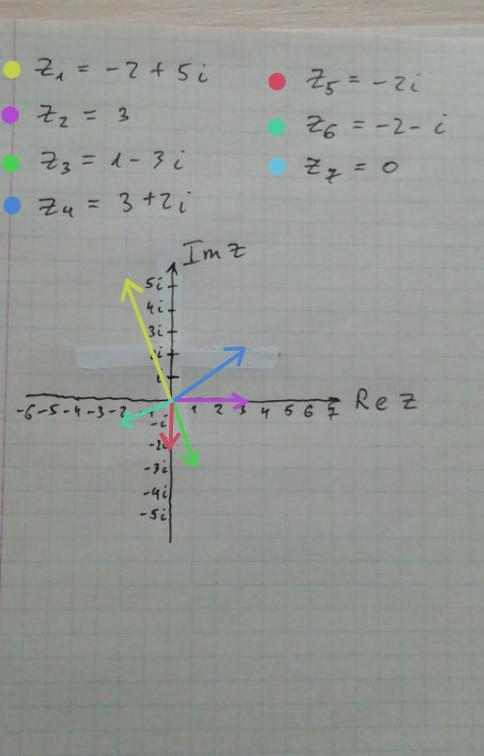 z₁ = -2 + 5i
z₂ = 3
z₃ = 1 - 3i
z₄ = 3 + 2i
z₅ = -2i
z₆ = -2 - i
z₇ = 0
Im z
5i
4i
3i
i
i
-6 -5 -4 -3 -2 1 2 3 4 5 6 7 Re z
-i
-2i
-3i
-4i
-5i